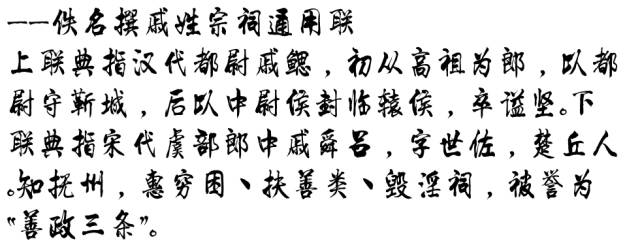 ——佚名撰戚姓宗祠通用联
上联典指汉代都尉戚鳃，初从高祖为郎，以都
尉守蕲城，后以中尉侯封临辕侯，卒谥坚。下
联典指宋代虞部郎中戚舜吕，字世佐，楚丘人
。知抚州，惠穷困、扶善类、毁淫祠，被誉为
“善政三条”。